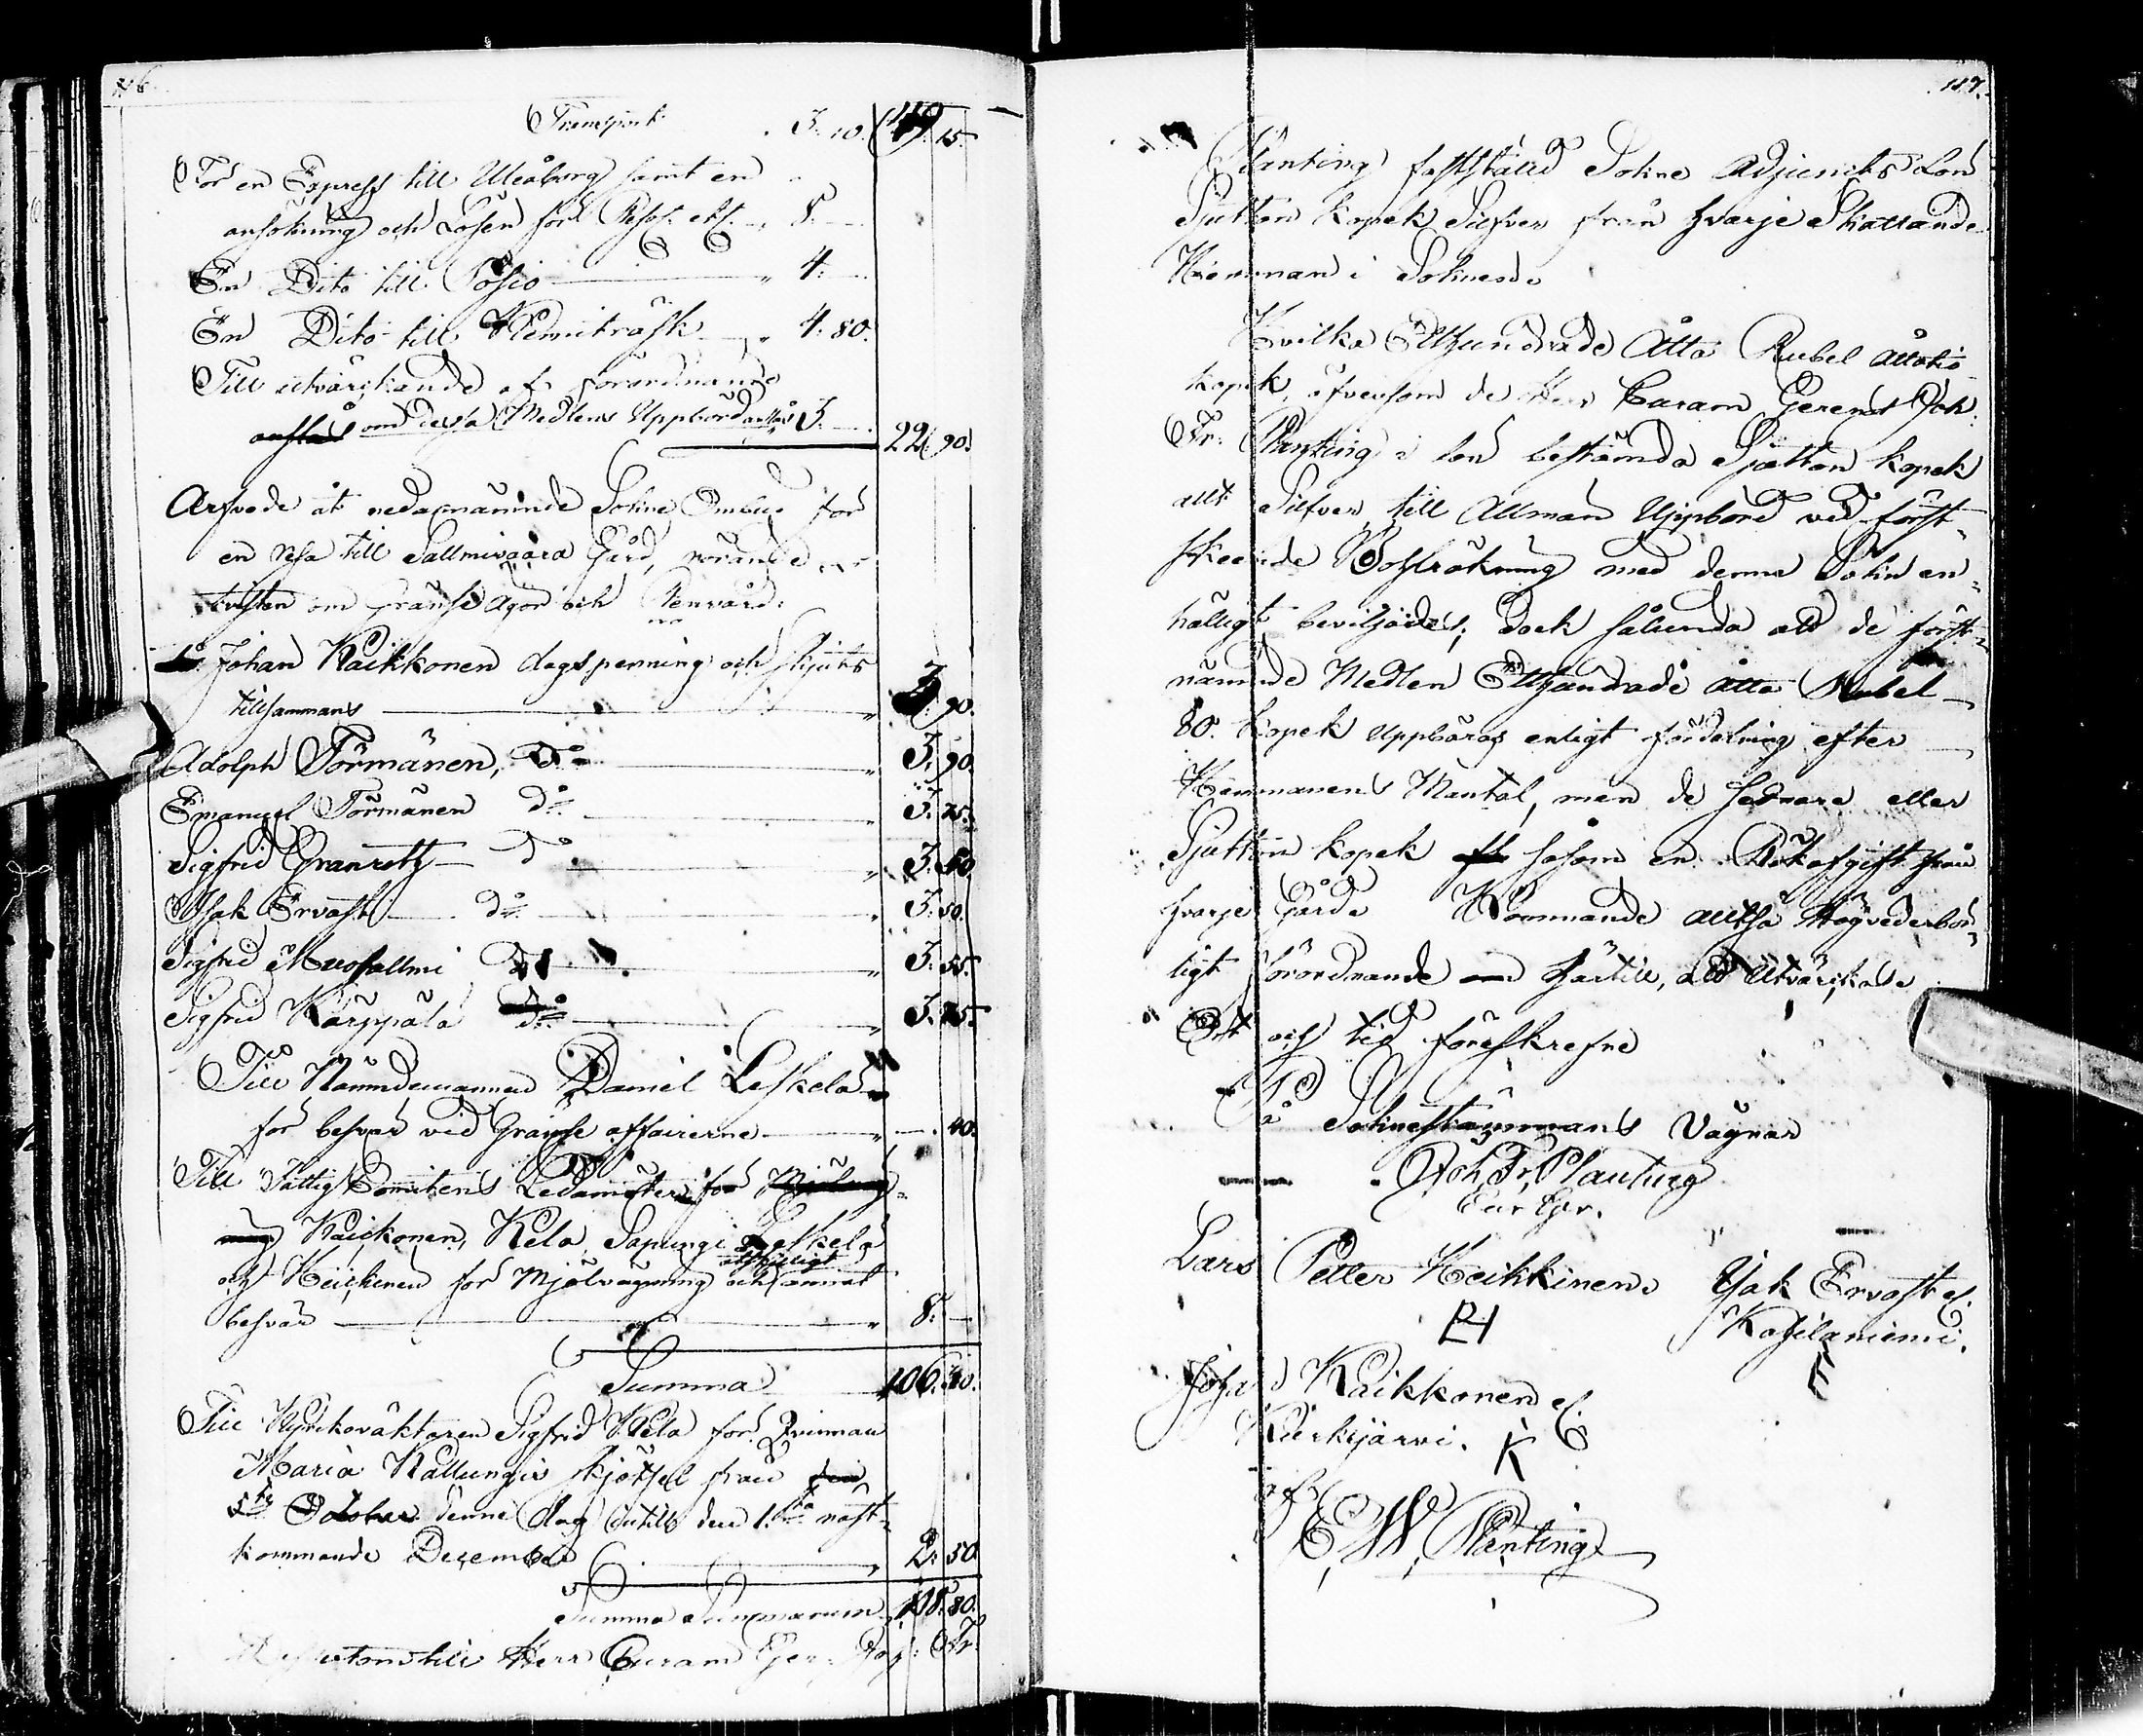 116.
Transport 3. 10. 49. 15.
För en Express till Uleåborg samt en
ansökning och Lösen för Resol. etc. „ 8. —
En Dito till Posio „ 4. —
En Dito till Kemiträsk „ 4. 80.
Till utvärckande af förordnande
om dessa Medlens Uppbörd anslås 3. — 22. 90.
Arfvode åt nedannämnde Sokne Ombud för
en resa till Sallmivaara Gård, rörande
tvisten om gränse Ägor och Renvård:
Johan Kaikkonen dagspenning och skjuts
tillsammans „ 3. 90.
Adolph Törmänen, do „ 3. 90.
Emanuel Törmänen do „ 3. 75.
Sigfrid Granroth do „ 3. 50
Isak Ervast do „ 3. 50.
Sigfrid Muosallmi do „ 3. 55.
Sigfrid Kärppälä do „ 3. 75.
Till Nämndemannen Daniel Leskelä
för besvär vid Gränse affairerne „ —. 40.
Till Fattig Comitens Ledamöter för
Kaickonen, Kela, Sapungi Leskelä
och Heickinen för Mjölvägning och åtskilligt annat
besvär „ 8. —
Summa 106. 30.
Till Kyrckoväktaren Sigfrid Kela för Qvinnan
Maria Kallungis skjötsel från
denne dag intill den 1:sta näst-
kommande December „ 2. 50
Summa Summarum 108. 80.
utom till Herr Curam Ger: Joh: Fr:
117.
Planting fastställd Sokne Adjuncts Lön
Sjutton kopek Silfver från hvarje Skattande
Hemman i Soknen.
Hvilka Etthundrade Åtta Rubel åttatio
kopek, äfvensom de Herr Curam Gerens Joh:
Fr: Planting i lön bestämda Sjutton kopek
allt Silfver, till Allmän Uppbörd vid först-
skeende Bohlräkning med denna Sokn en-
hälligt beviljades; dock sålunda att de först-
nämnde Medlen Etthundrade åtta Rubel
80. kopek uppbäras enligt fördelning efter
Hemmanens Mantal, men de sednare eller
Sjutton kopek såsom en Rökafgift från
hvarje Gård. Kommande alltså Högvederbör-
ligt förordnande härtill, att utvärckas.
Ort och tid föreskrefne
På Soknestämmans Vägnar
Joh. Fr. Planting
Cur. Ger.
Lars Petter Heikkinen. Isak Ervast el.
PH Kosilaniemi.
Johan Kaikkonen el.
Kurkijärvi. K
E. W. Planting